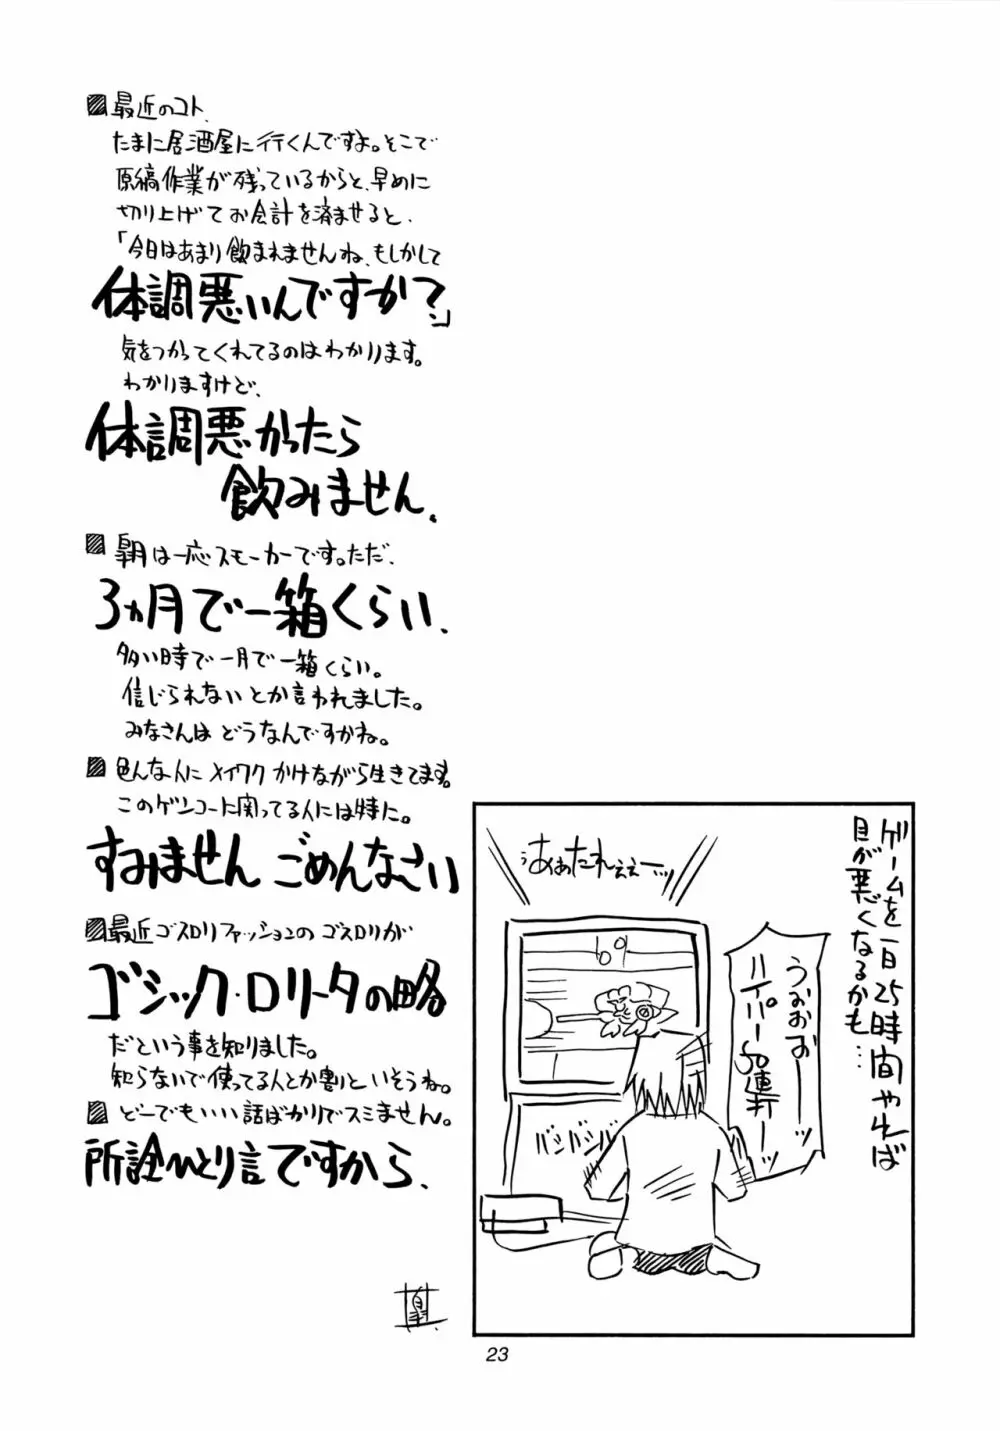 最近のコト.
たまに居酒屋に行くんですよ。そこで
原稿作業が残っているからと、早めに
切り上げてお会計を済ませると、
「今日はあまり飲まれませんね、もしかして
体調悪いんですか?」
気をつかってくれてるのはわかります。
わかりますけど、
体調悪かったら
飲みません.
は一応スモーカーです。ただ、
3ヵ月で一箱くらい.
多い時で一月で一箱くらい。
信じられないとか言われました。
みなさんはどうなんですかね。
色んな人にメイワクかけながら生きてます。
このゲンコーに関ってる人には特に。
すみません ごめんなさい
最近ゴスロリファッションのゴスロリが
ゴシック・ロリータの略
だという事を知りました。
知らないで使ってる人とか割といそうね。
どーでもいい話ばかりでスミません。
所詮ひとり言ですから.
ゲームを一日25時間やれば
目が悪くなるかも…
うぉぉおーーッ
ハイパー50連打ーッ
あぁたれぇぇーッ
バンバン
23